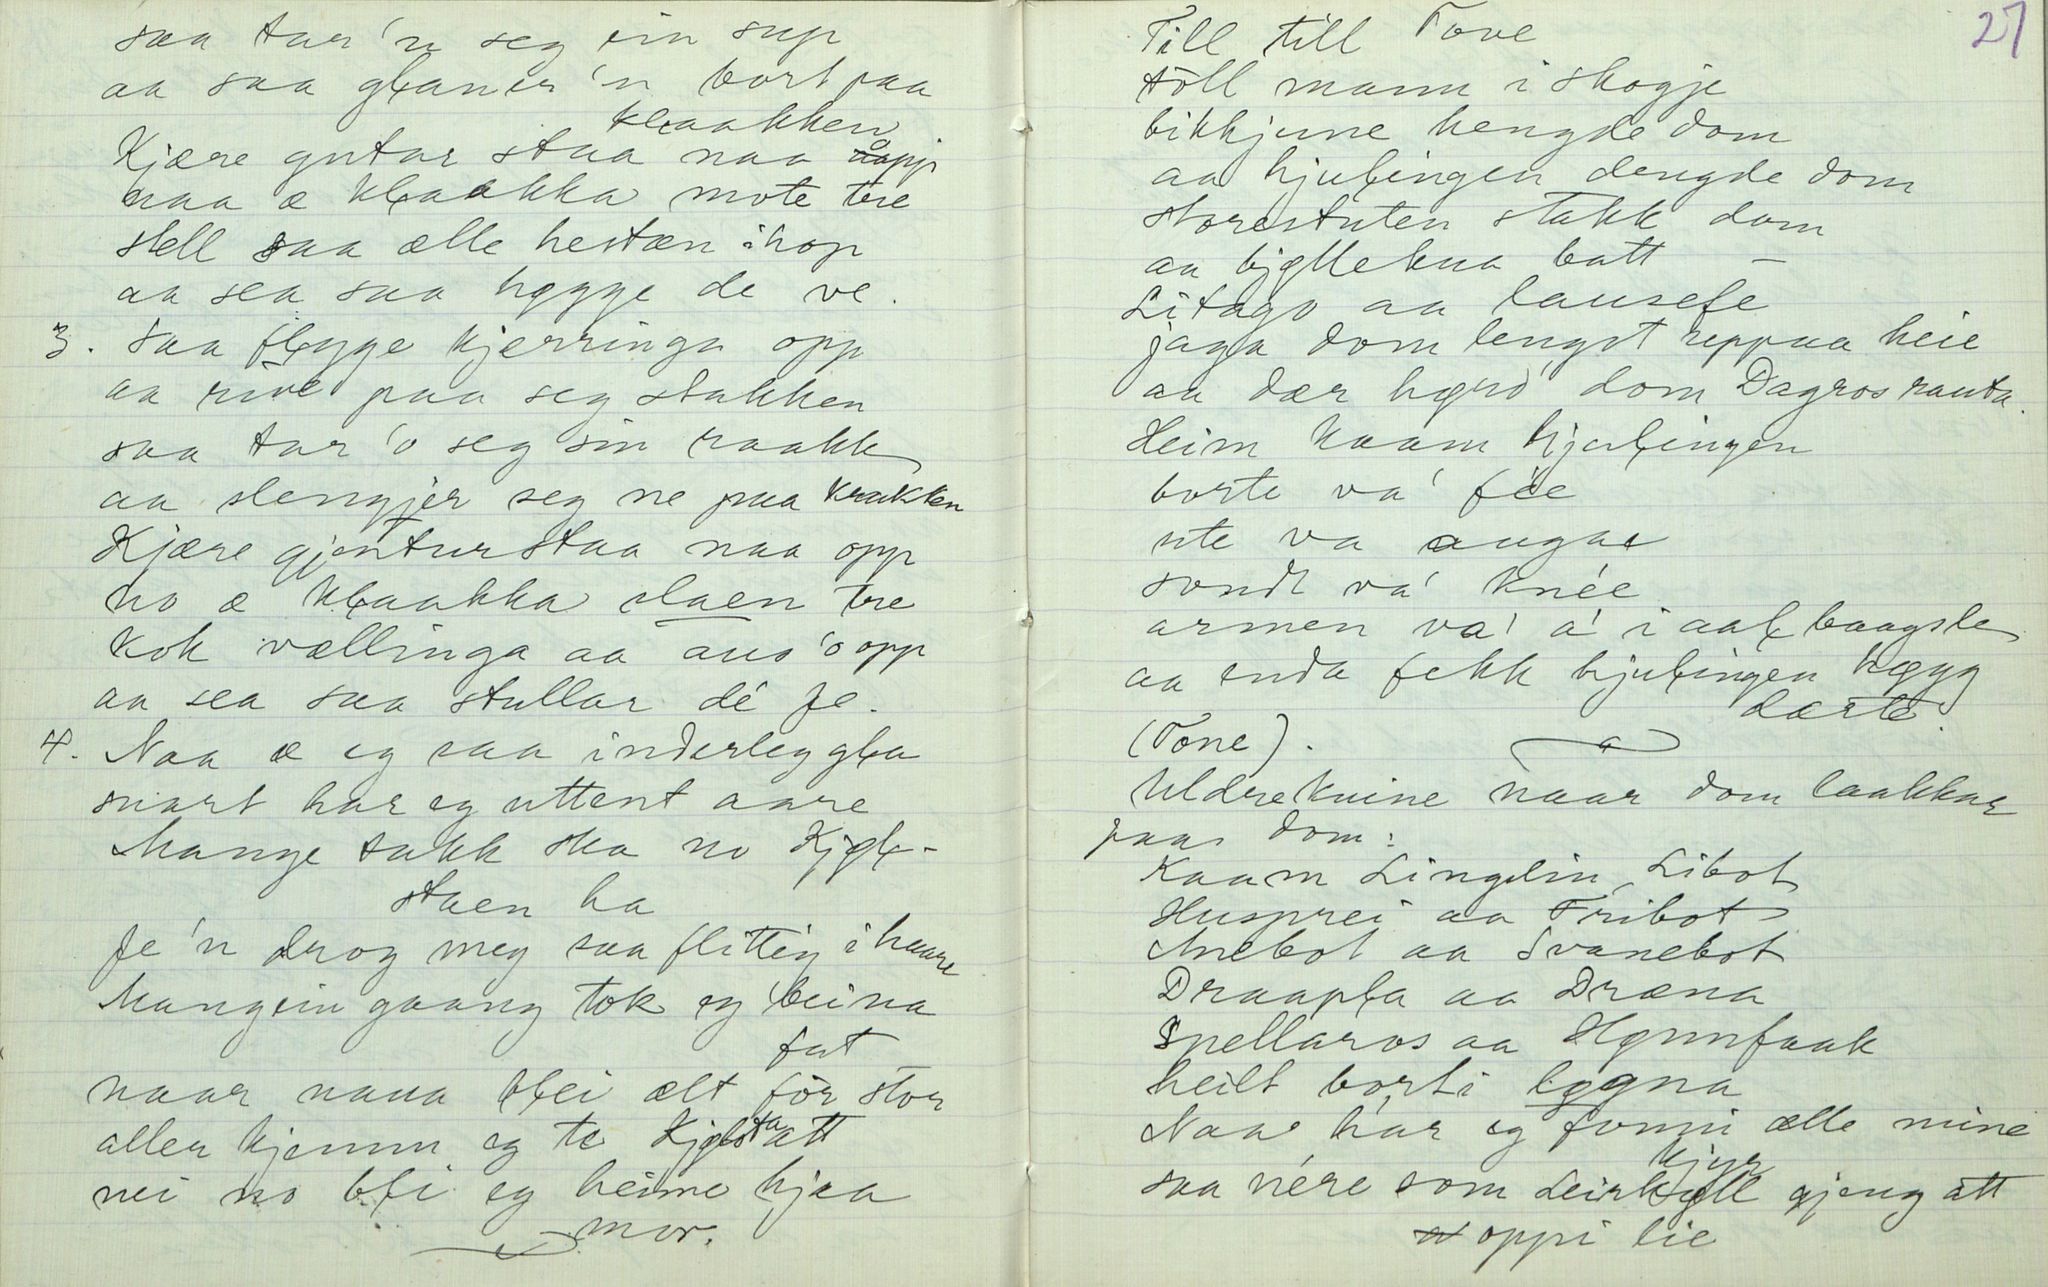 saa tar'n seg ein sup
aa saa glaner'n bort paa
klaakken
Kjære gutar staa naa opp
naa æ klaakka mote tre
stell saa ælle hestæn ihop
aa sea saa høgge de ve.
3. Saa fløge kjerringa opp
aa rive paa seg stakken
saa tar'o seg sin raakk
aa slengjer seg ne paa krakken
Kjære gjentur staa naa opp
no æ klaakka slaen tre
kok vællinga aa aus'o opp
aa sea saa stullar dé fe.
4. Naa æ eg saa inderleg gla
snart har eg uttent aare
Mange takk ska no Kjøl-
staen ha
fe'n drog meg saa flittig i haare
Mangein gaang tok eg beina
fat
naar naua blei ælt för stor
aller kjemm eg te Kjølstaatt
nei no bli eg heime hjaa
mor.
27
Till till Tove
töll mann i skogje
bikkjune hengde dom
aa hjulingen dengde dom
storestuten stakk dom
aa bjøllekua batt –
Litago aa lausele
jaga dom lengst uppaa heie
aa dær hørd' dom Dagros rauta.
Heim kaam hjulingen
borte va' fée
ute va augae
sondt va' knée
armen va' a' i aal baagsle
aa enda fekk hjulingen høgg
dærte
(Tone).
Uldrekuine naar dom laakkar
paa dom:
Kaam Lingelin, Libot
Husprei aa Fribot
Anebot aa Svanebot
Draapla aa Dræna
Spellaros aa Hønnfaak
heilt borti løgna
Naa har eg fonni ælle mine
kjyr
saa nére som Leirkøll gjeng att
oppi lie